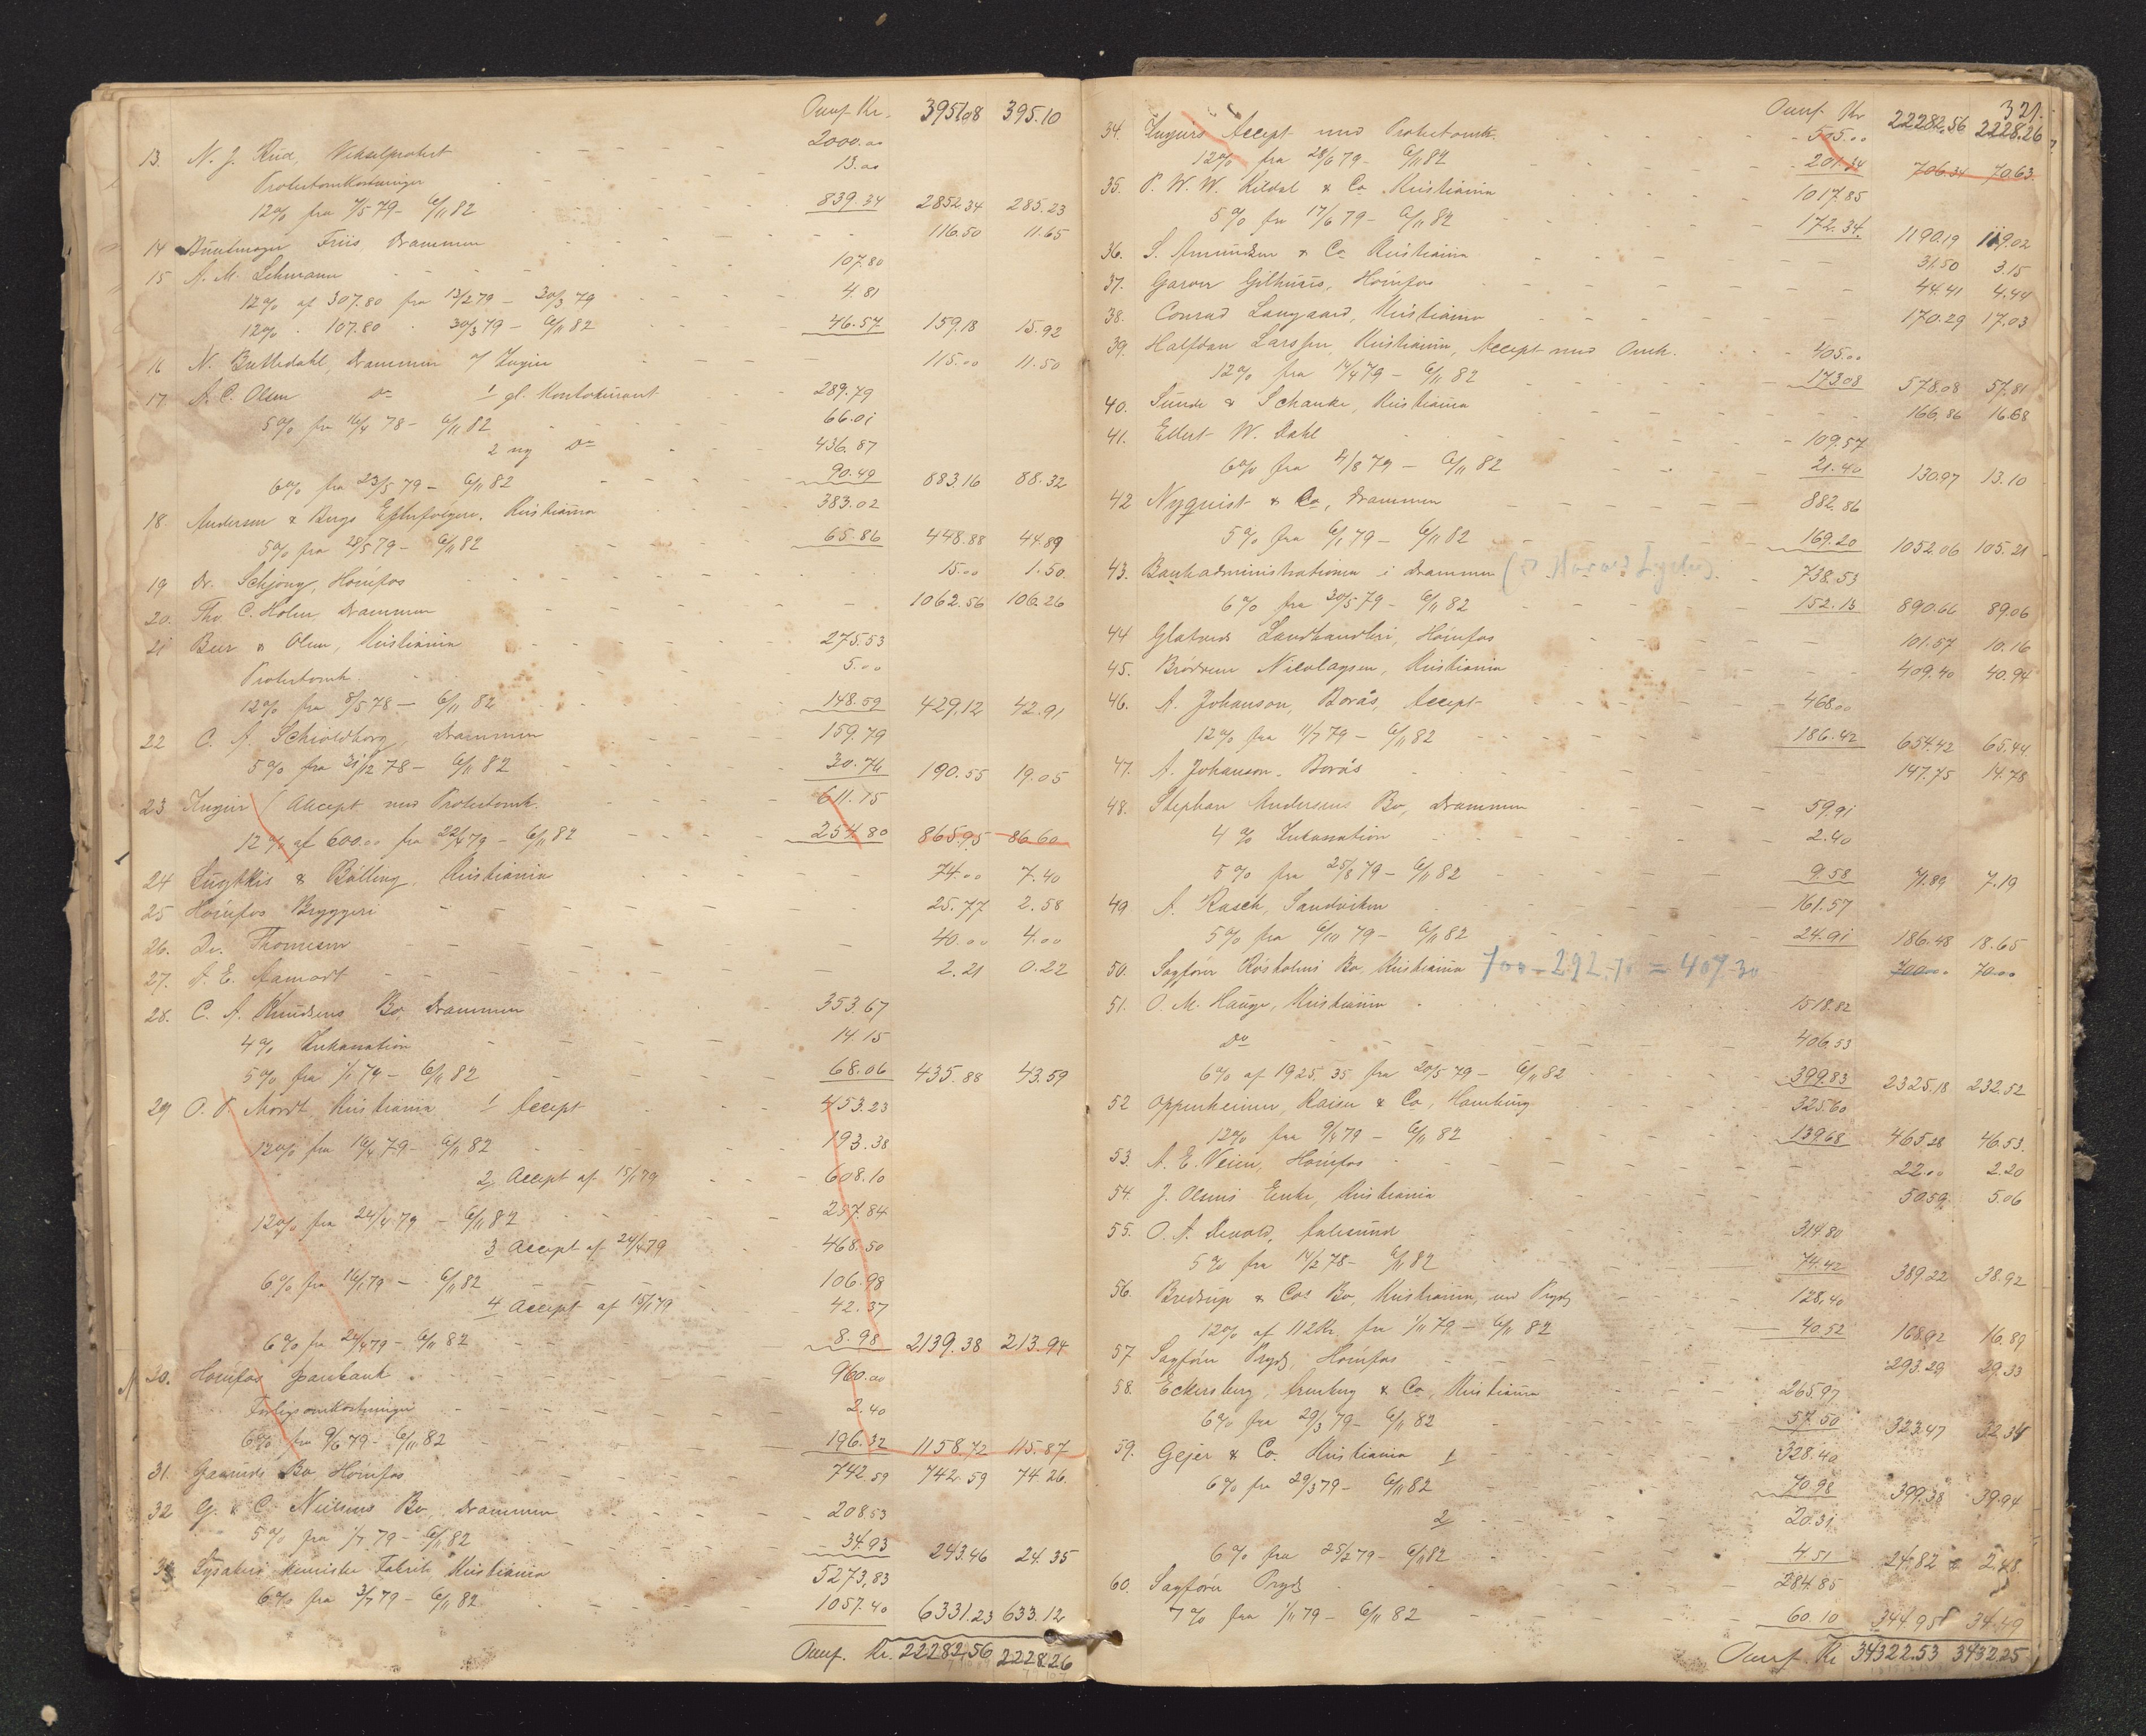 Ouuf. Kr. 3951.08 395.10
2000.00
13. N. J. Rud, Vekselprotest 13.00
Protestomkostninger
12% fra 7/5 79 - 6/11 82 839.34 2852.34 285.23
14 Buntmager Friis, Drammen 116.50 11.65
15 A. M. Lehmann 107.80
12% af 307.80 fra 13/2 79 - 30/3 79 4.81
12% - 107.80 - 30/3 79 - 6/11 82 46.57 159.18 15.92
16 N. Buttedahl, Drammen 115.00 11.50
17. A. C. Olsen Do 1 gl. Kontokurant 289.79
5% fra 16/4 78 - 6/11 82 66.01
2 ny Do 436.87
6% fra 23/5 79 - 6/11 82 90.49 883.16 88.32
18. Andersen & Bergs Efterfølgere, Kristiania 383.02
5% fra 28/5 79 - 6/11 82 65.86 448.88 44.89
19 Dr. Schjong, Hønefos 15.00 1.50
20. Th. C. Holm, Drammen 1062.56 106.26
21 Beer & Olsen, Kristiania 275.53
Protestomk. 5.00
12% fra 8/5 78 - 6/11 82 148.59 429.12 42.91
22 C. A. Schioldborg, Drammen 159.79
5% fra 31/12 78 - 6/11 82 30.76 190.55 19.05
23 Accept med Protestomk. 611.15
12% af 600.00 fra 22/4 79 - 6/11 82 254.80 865.95 86.60
24 & Bølling, Kristiania 74.00 7.40
25 Hønefos Bryggeri 25.77 2.58
26. Dr. Thomesen 40.00 4.00
27. A. E. Aamodt 2.21 0.22
28. C. A. Knudsens Bo Drammen 353.67
4% Inkassation 14.15
5% fra 1/1 79 - 6/11 82 68.06 435.88 43.59
29 O. P. Mordt, Kristiania 1 Accept 453.23
12% fra 16/4 79 - 6/11 82 193.38
2 Accept af 15/1 79 608.10
12% fra 24/4 79 - 6/11 82 257.84
3 Accept af 24/4 79 468.50
6% fra 16/1 79 - 6/11 82 106.98
4 Accept af 15/1 79 42.37
6% fra 24/4 79 - 6/11 82 8.98 2139.38 213.94
30. Hønefos Sparebank 960.00
Forligsomkostninger 2.40
6% fra 9/6 79 - 6/11 82 196.32 1158.72 115.87
31. Bo, Hønefos 742.59 742.59 74.26
32 G. & C. Nielsens Bo, Drammen 208.53
5% fra 1/7 79 - 6/11 82 34.93 243.46 24.35
33 Lysakers kemiske Fabrik, Kristiania 5273,83
6% fra 3/7 79 - 6/11 82 1057.40 6331.23 633.12
Ouuf. Kr. 22282,56 2228.26
321.
Ouuf. Kr 22282,56 2228.26
34. Accept med Protestomk. 505.00
12% fra 28/6 79 - 6/11 82 201.34 706.34 70.63
35. P. W. W. Kildal & Co Kristiania 1017.85
5% fra 17/6 79 - 6/11 82 172.34 1190.19 119.02
36. S. Amundsen & Co Kristiania 31.50 3.15
37. Garver Gilhuus, Hønefos 44.41 4.44
38. Conrad Langaard, Kristiania 170.29 17.03
39. Halfdan Larssen, Kristiania, Accept med Omk. 405.00
12% fra 14/4 79 - 6/11 82 173.08 578.08 57.81
40. Sunde & Schanke, Kristiania 166.86 16.68
41. Ellert W. Dahl 109.57
6% fra 4/8 79 - 6/11 82 21.40 130.97 13.10
42 Nyquist & Co, Drammen 882.86
5% fra 6/1 79 - 6/11 82 169.20 1052.06 105.21
43. Bankadministrationen i Drammen 738.53
6% fra 30/5 79 - 6/11 82 152.13 890.66 89.06
44 Glatveds Landhandleri, Hønefos 101.57 10.16
45. Brødrene Nicolaysen, Kristiania 409.40 40.94
46. A. Johanson, Borås, Accept 468.00
12% fra 11/7 79 - 6/11 82 186.42 654.42 65.44
47. A. Johanson, Borås 147.75 14.78
48. Stephan Andersens Bo, Drammen 59.91
4% Inkassation 2.40
5% fra 25/8 79 - 6/11 82 9.58 71.89 7.19
49 A. Rasch, Sandviken 161.57
5% fra 6/10 79 - 6/11 82 24.91 186.48 18.65
50. Sagfører Rosholms Bo, Kristiania 700 - 292.70 = 407.30 700.00 70.00
51. O. M. Hauge, Kristiania 1518.82
Do 406.53
6% af 1925.35 fra 20/5 79 - 6/11 82 399.83 2325.18 232.52
52 Oppenheimer, Kaiser & Co, Hamburg 325.60
12% fra 9/4 79 - 6/11 82 139.68 465.28 46.53
53. A. E. Veien, Hønefos 22.00 2.20
54. J. Olsens Enke, Kristiania 50.59 5.06
55. O. A. Devold, Aalesund 314.80
5% fra 14/2 78 - 6/11 82 74.42 389.22 38.92
56. Bredrup & Cos Bo, Kristiania, ved Pryds 128.40
12% af 112 Kr. fra 1/11 79 - 6/11 82 40.52 168.92 16.89
57 Sagfører Pryds, Hønefos 293.29 29.33
58. Eckersberg, Arenberg & Co, Kristiania 265.97
6% fra 29/3 79 - 6/11 82 57.50 323.47 32.35
59. Gejer & Co. Kristiania 1 328.40
6% fra 29/3 79 - 6/11 82 70.98 399.38 39.94
2 20.31
6% fra 25/2 79 - 6/11 82 4.51 24.82 2.48
60. Sagfører Pryds 284.85
7% fra 1/11 79 - 6/11 82 60.10 344.95 34.49
Ouuf. Kr 34322.53 3432.25